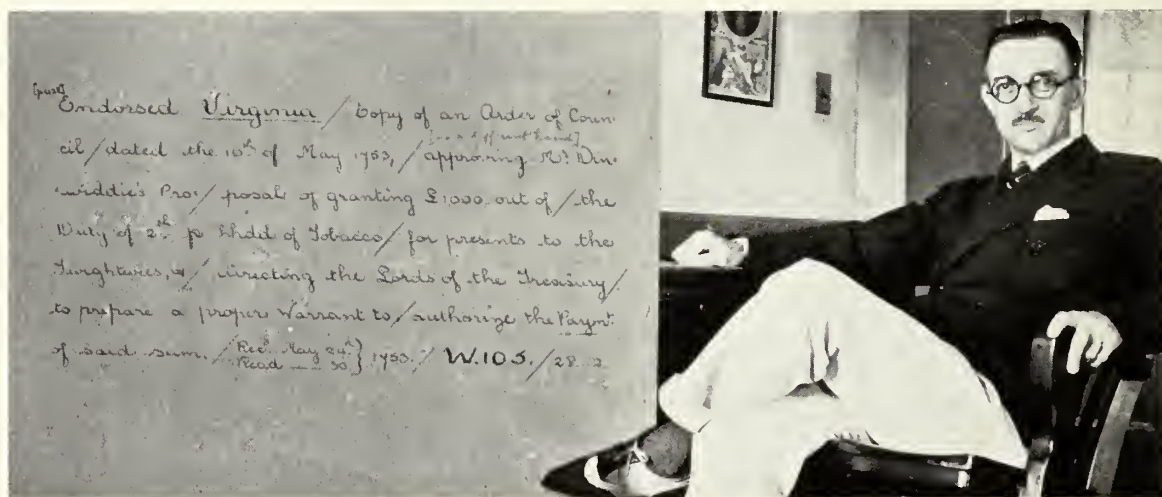 Endorsed Virginia / Copy of an Order of Coun-
cil / dated the 10th of May 1753, / approving Mr. Din-
widdie's Pro- / posal of granting £1000 out of / the
Duty of 2sh p Hhd of Tobacco / for presents to the
/ directing the Lords of the Treasury /
to prepare a proper Warrant to / authorize the Paymt.
of said sum. / Recd. May 24th } 1753. / W.103. / 28
Read — — 30